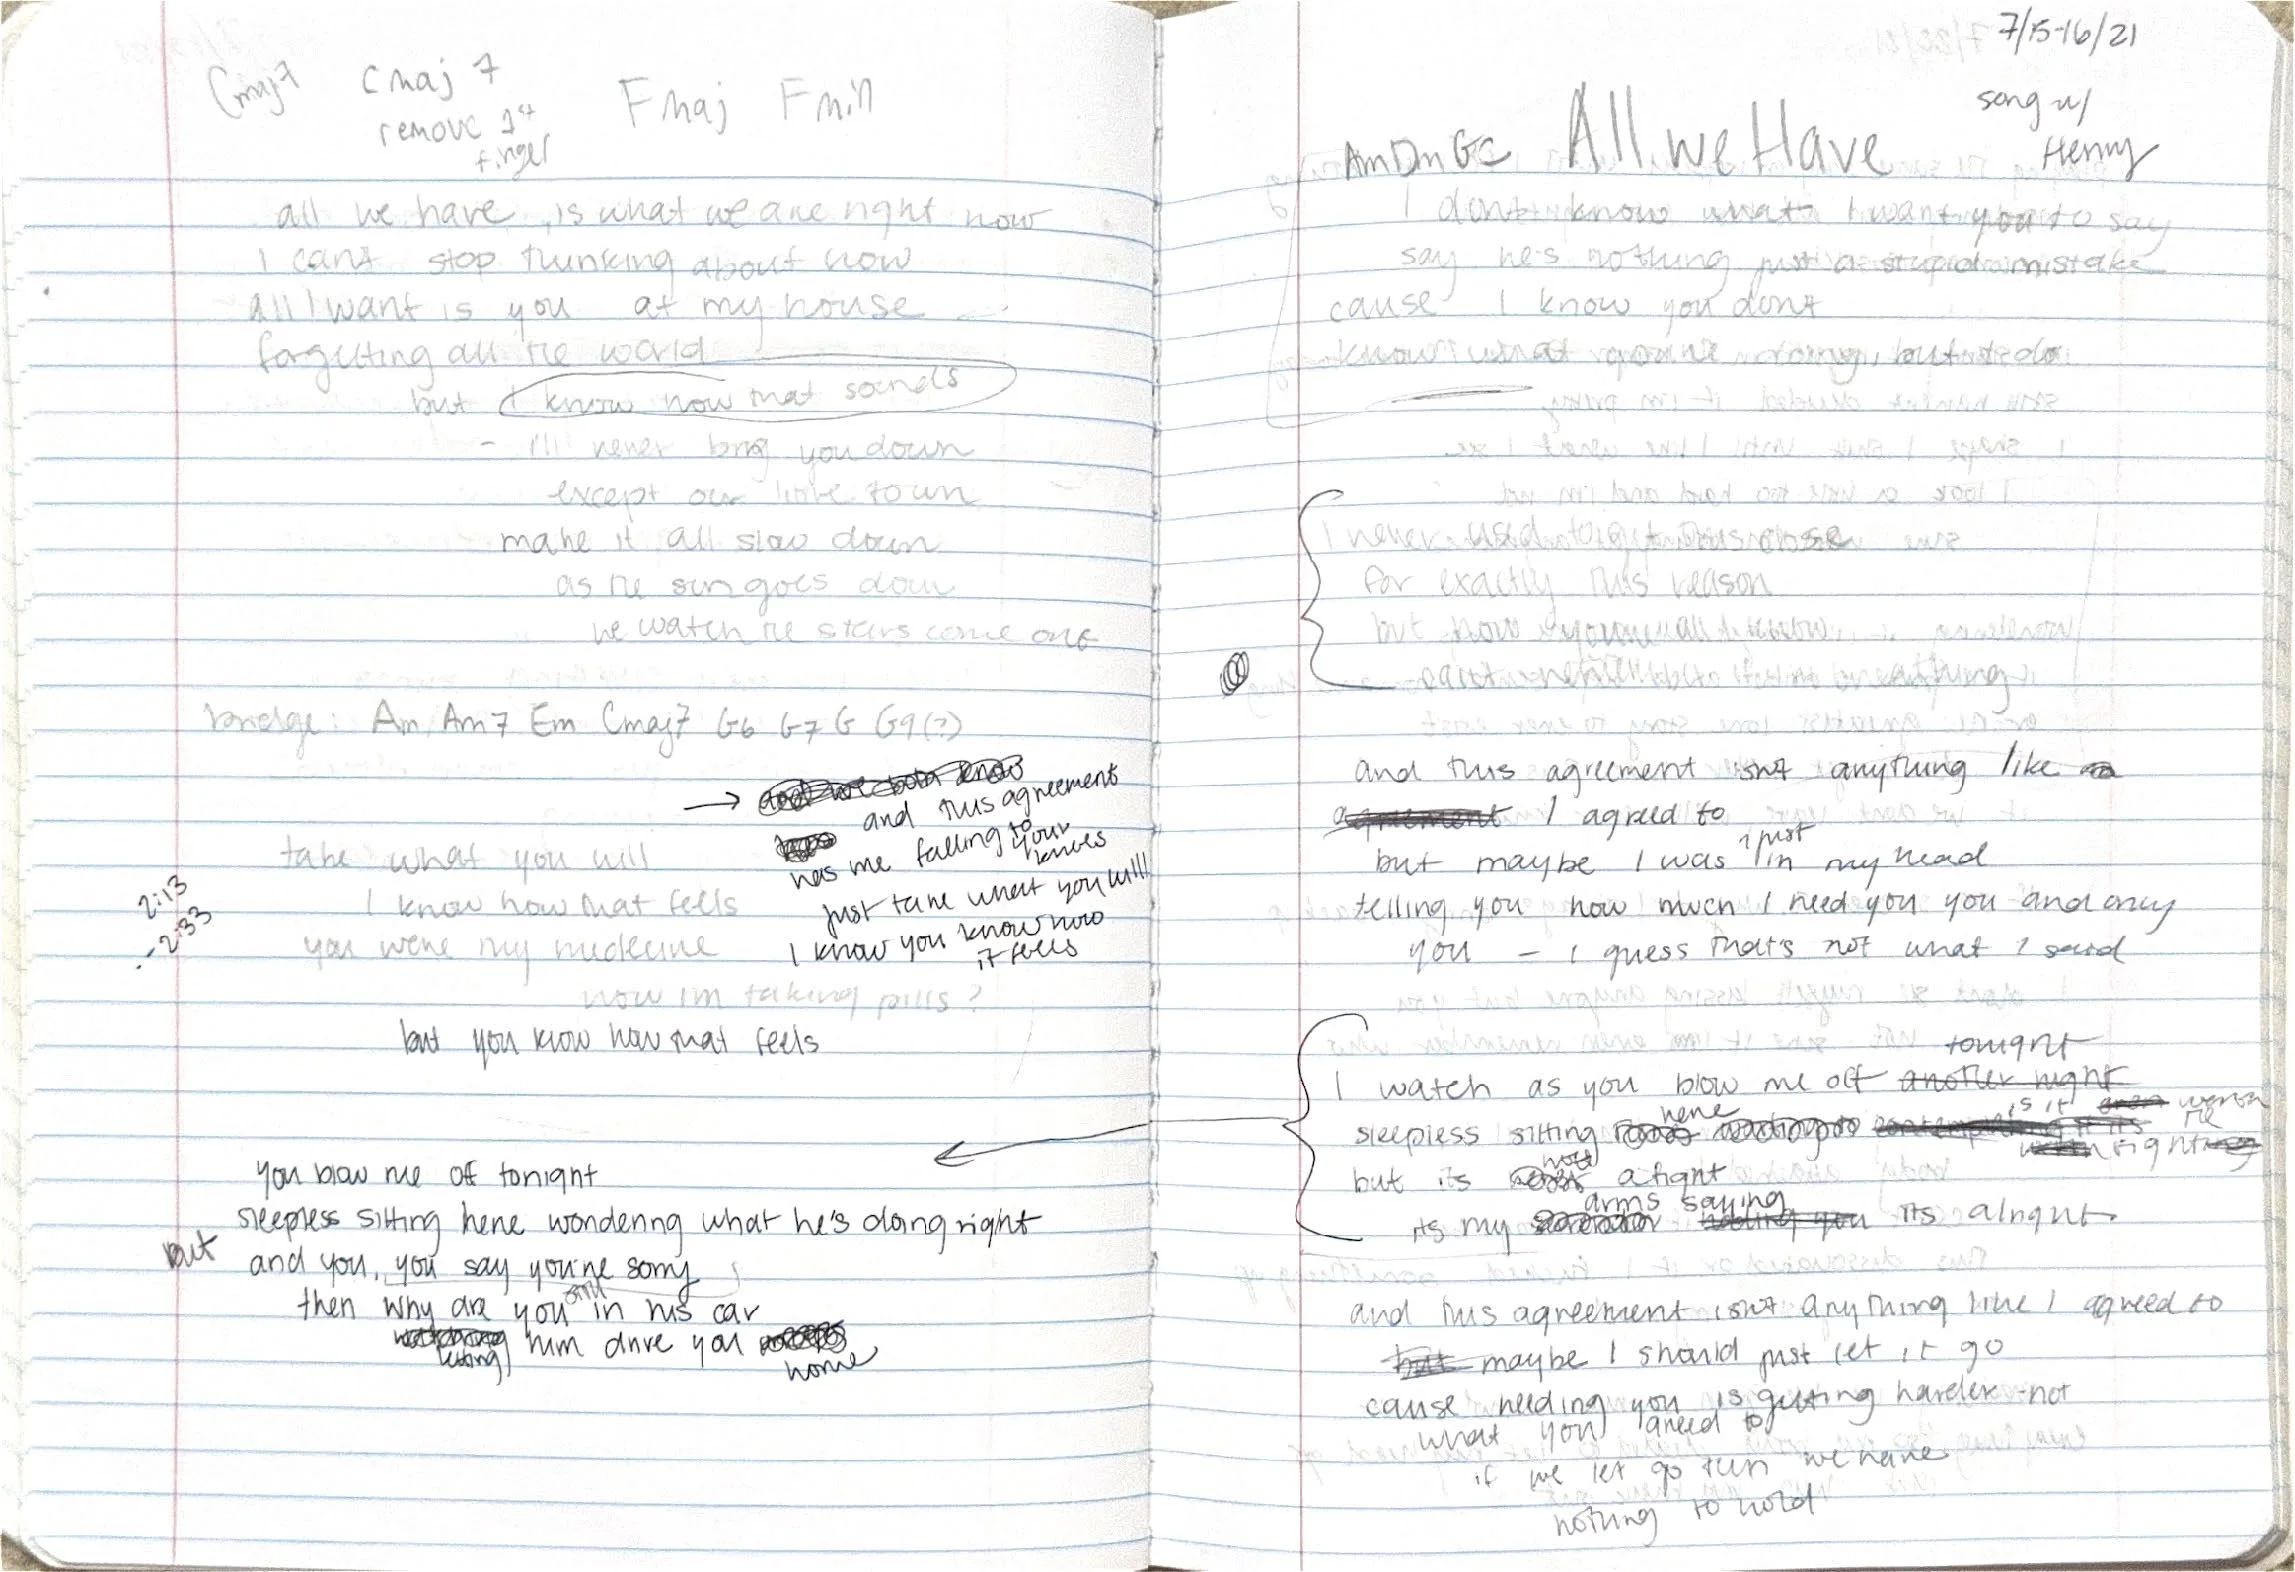 Cmaj7 Cmaj7 Fmaj Fmin
remove 1st
finger
all we have is what we are right now
I cant stop thinking about how
all I want is you at my house
forgetting all the world
but I know how that sounds
- I'll never bring you down
except our little town
make it all slow down
as the sun goes down
we watch the stars come out
bridge: Am Am7 Em Cmaj7 G6 G7 G G9(?)
→ and we both know
and this agreement
has me falling to your
knives
just take what you will
I know you know how
it feels
take what you will
I know how that feels
you were my medicine
now im taking pills?
2:13
-2:33
but you know how that feels
you blow me off tonight
sleepless sitting here wondering what he's doing right
but and you, you say you're sorry
then why are you still in his car
letting him drive you
home
7/15-16/21
song w/
Henry
Am Dm G C All we Have
I dont know what I want you to say
say he's nothing just a stupid mistake
cause I know you dont
know what you're doing, but I do
I never used to get this close
for exactly this reason
but now you're all I know
and this agreement isnt anything like a
agreement I agreed to
but maybe I was just in my head
telling you how much I need you you and only
you - I guess that's not what I said
tonight
I watch as you blow me off another night
sleepless sitting here is it worth the
but its not a fight right
its my arms saying holding you its alright
and this agreement isnt anything like I agreed to
but maybe I should just let it go
cause needing you is getting harder not
what you agreed to
if we let go then we have
nothing to hold